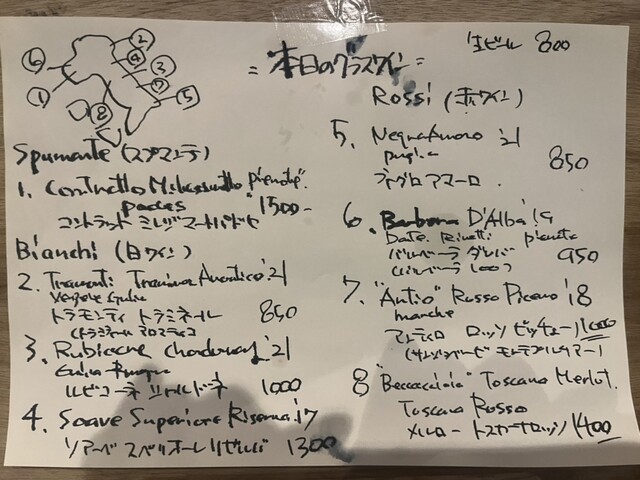 6
1
2
4
3
7
5
8
=本日のグラスワイン=
生ビール 800
Spumante (スプマンテ)
1. Contratto Millesimato "Piemonte"
pas dosé 1500-
コントラット ミレジマート パドゼ
Bianchi (白ワイン)
2. Tramonti Traminer Aromatico '21
トラモンティ トラミネール 850
(トラミネール アロマティコ
3. Rubicone Chardonnay '21
ルビコーネ シャルドネ 1000
4. Soave Superiore Riserva '17
ソアーベ スペリオーレ リゼルバ 1300
Rossi (赤ワイン)
5. Negroamaro '21
puglia 850
ネグロアマーロ.
6. Barbera D'Alba '19
Piemonte
バルベーラ ダルバ 950
(バルベーラ 100%)
7. "Antio" Rosso Piceno '18
marche
ロッソ ピチェーノ 1000
8 "Beccacciaia" Toscano Merlot.
Toscano Rosso
メルロー トスカーナロッソ 1400